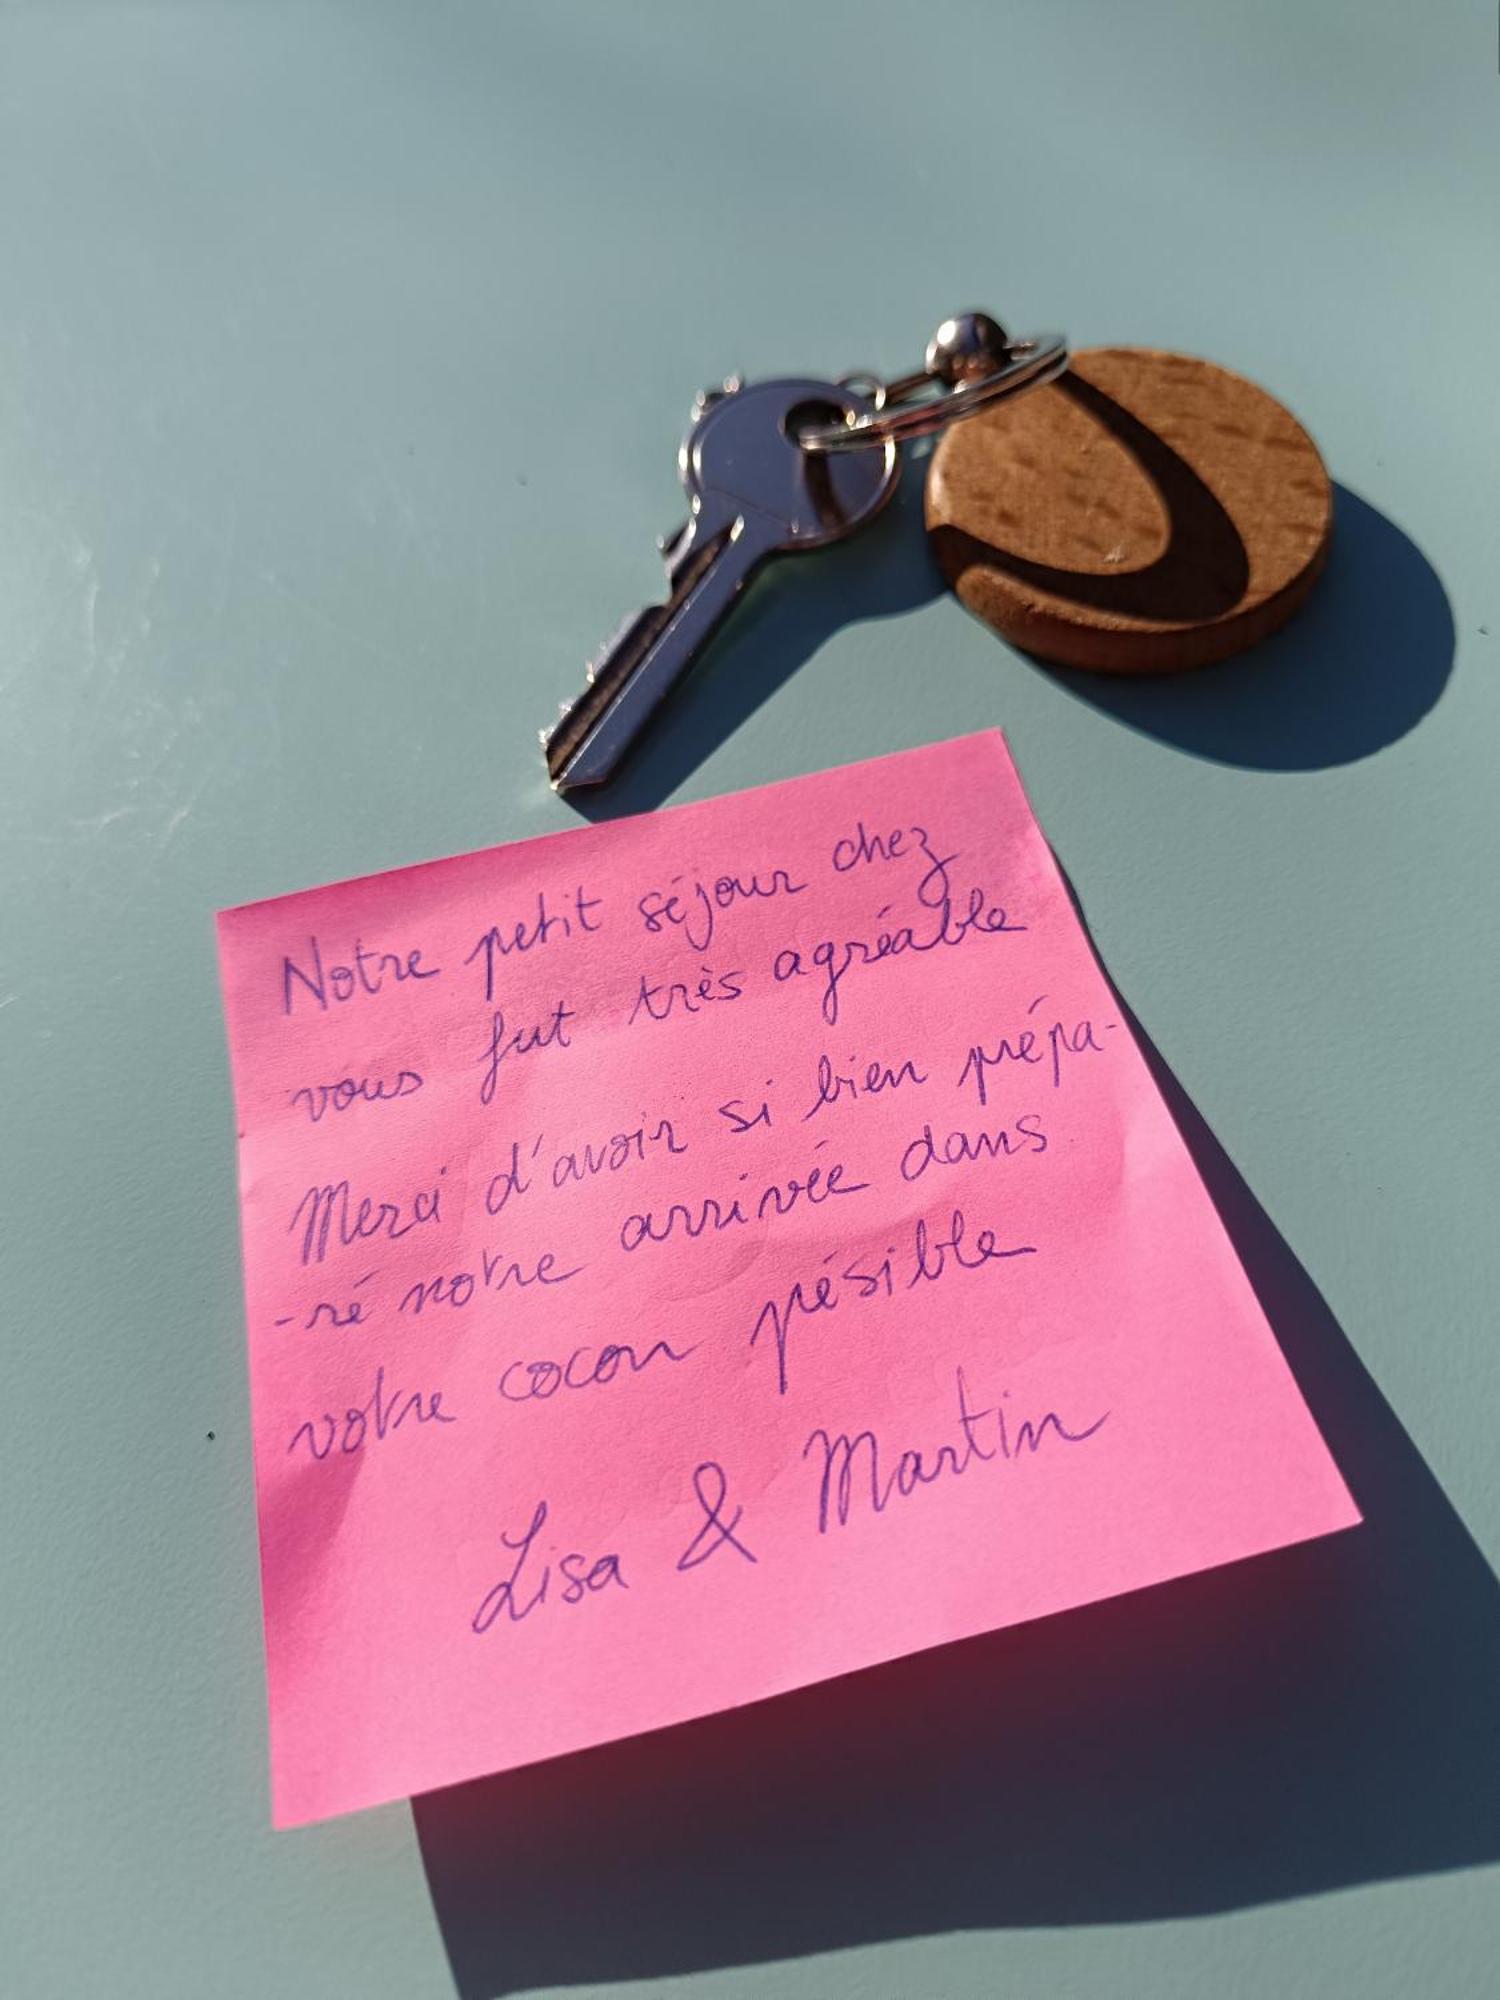 Notre petit séjour chez
vous fut très agréable
Merci d'avoir si bien prépa-
-ré notre arrivée dans
votre cocon pésible
Lisa & Martin